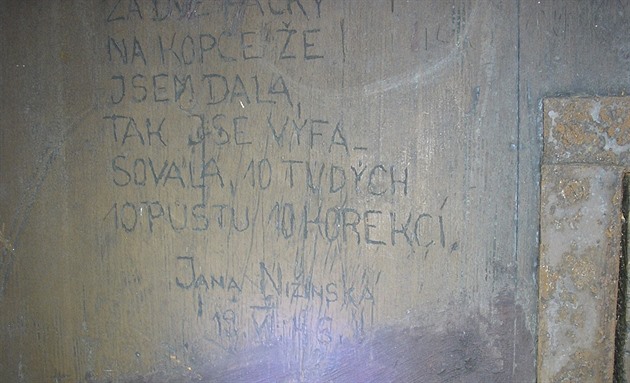 ZA DVĚ FACKY
NA KOPCE ŽE
JSEM DALA,
TAK JSE VYFA-
SOVALA, 10 TVDÝCH
10 PUSTU 10 KOREKCÍ.
JANA NIŽINSKÁ
19. VI.